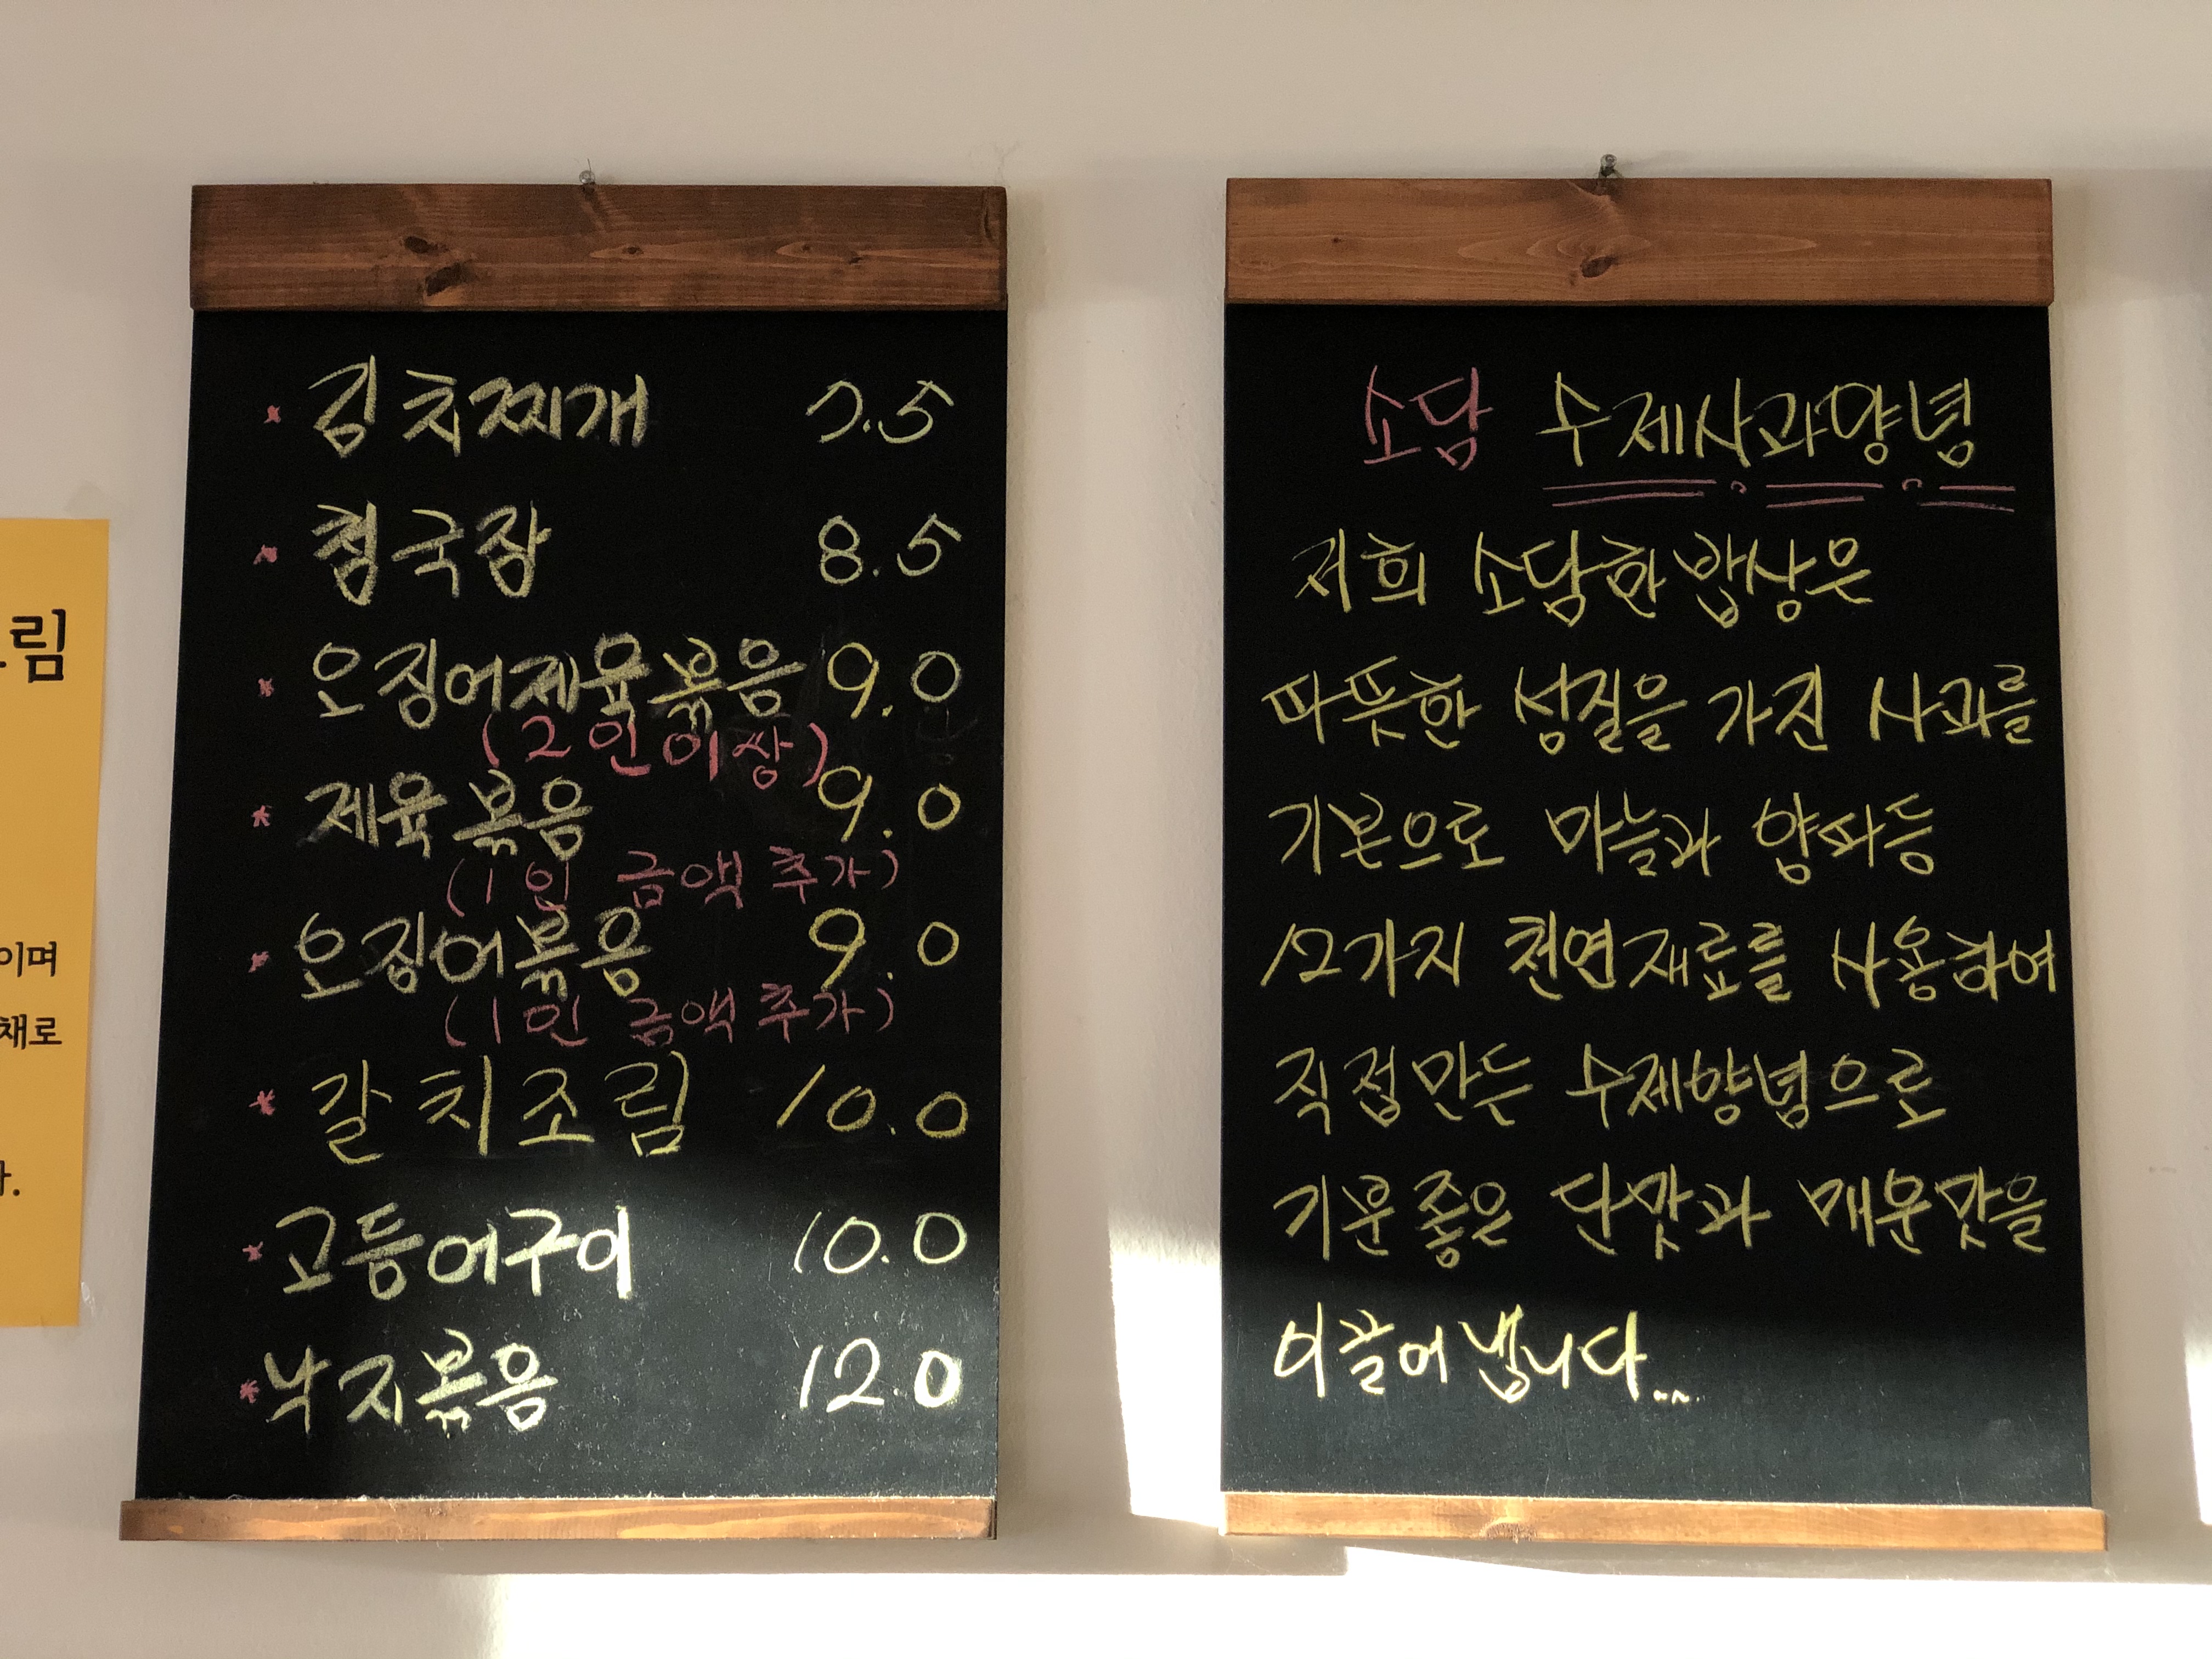 림
이며
채로
.
* 김치찌개 7.5
* 청국장 8.5
* 오징어제육볶음 9.0
(2인이상)
* 제육볶음 9.0
(1인 금액 추가)
* 오징어볶음 9.0
(1인 금액 추가)
* 갈치조림 10.0
* 고등어구이 10.0
* 낙지볶음 12.0
소담 수제사과양념
저희 소담한밥상은
따뜻한 성질을 가진 사과를
기본으로 마늘과 양파등
12가지 천연재료를 사용하여
직접만든 수제양념으로
기분좋은 단맛과 매운맛을
이끌어냅니다...